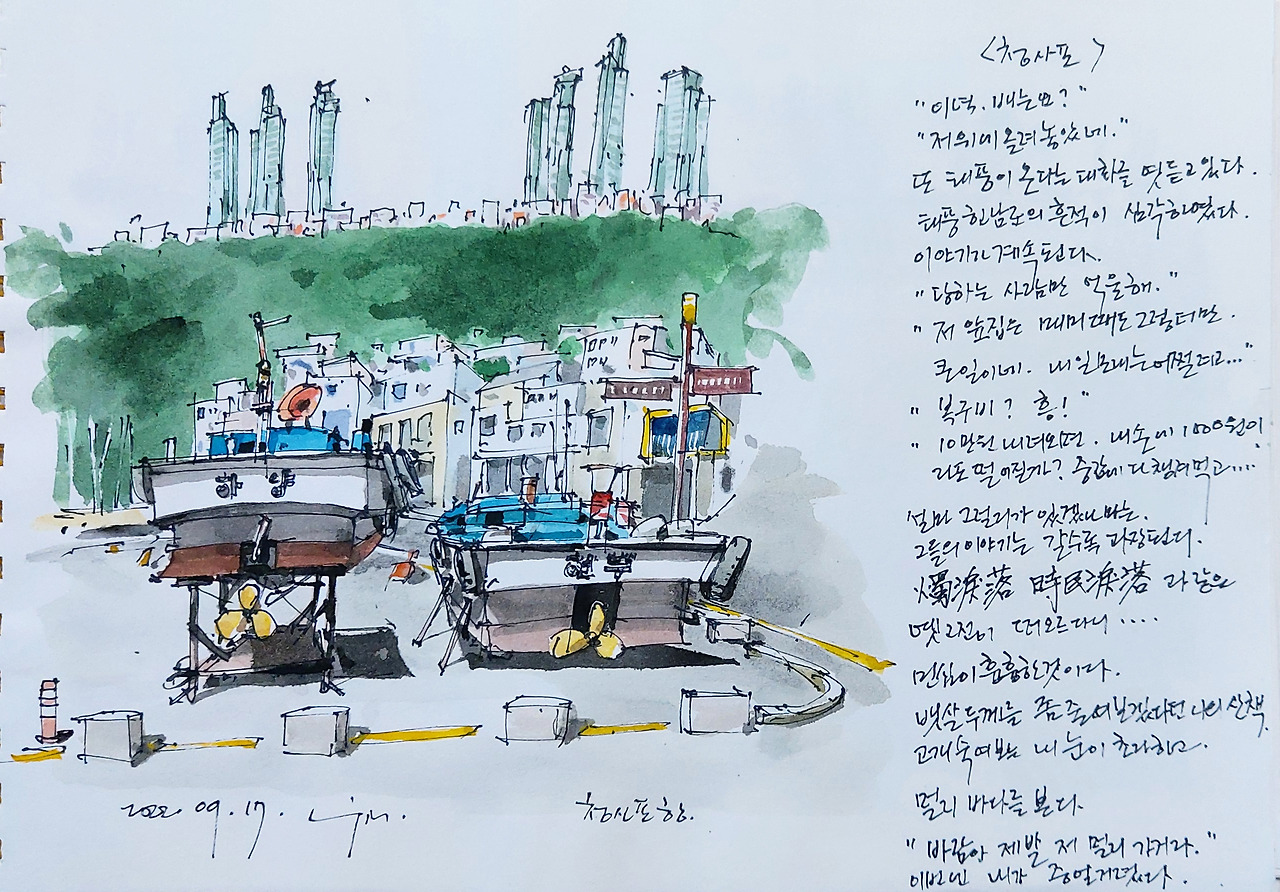 <청사포>
"이녁. 배는요?"
"저 위에 올려놓았네."
또 태풍이 온다는 대화를 엿듣고 있다.
태풍 힌남노의 흔적이 심각하였다.
이야기가 계속된다.
"당하는 사람만 억울해."
"저 앞집은 매미때도 그렇더만.
큰일이네. 내일모레는 어쩔려고..."
"복구비? 흥!"
"10만원 내려오면. 내손에 1000원이
라도 떨어질까? 중간에 다 쳐먹고....
설마 그럴리가 있겠냐마는.
그들의 이야기는 갈수록 과장된다.
燭淚落 時民淚落 과 같은
옛 고전이 떠오르다니 ....
민심이 흉흉한것이다.
뱃살 두께를 좀 줄여보겠다던 나의 산책.
고개숙여보는 내 눈이 초라하고.
멀리 바다를 본다.
"바람아 제발 저 멀리 가거라."
이번엔 내가 중얼거렸다.
하 냥
2022. 09. 17.
청사포항.